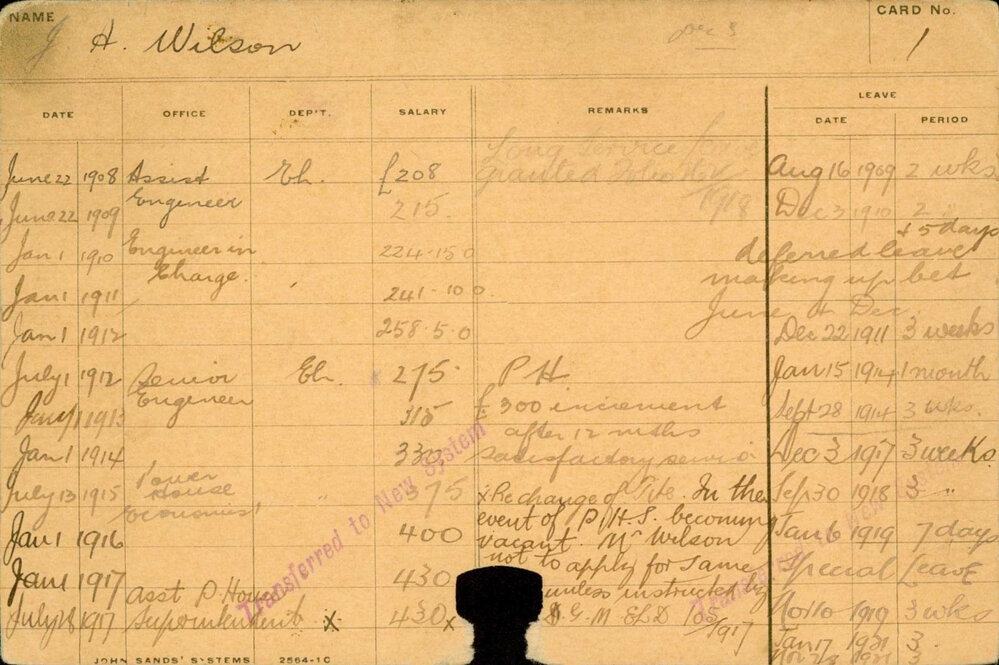 NAME
H. Wilson
CARD No.
1
DATE OFFICE DEP'T. SALARY REMARKS LEAVE DATE PERIOD
Long Service
granted
1918
June 22 1908 Assist Eh. £208 Aug 16 1909 2 wks
Engineer
June 22 1909 215 Dec 3 1910 2 "
+ 5 days
Jan 1 1910 Engineer in 224.15.0 deferred leave
Charge. making up bet
Jan 1 1911 241.10.0 June & Dec.
Jan 1 1912 258.5.0 Dec 22 1911 3 weeks
July 1 1912 Senior Eh. 275 P H. Jan 15 1914 1 month
Engineer
Jan 1 1913 315 £300 increment Sept 28 1914 3 wks.
after 12 mths
Jan 1 1914 330 satisfactory service Dec 3 1917 3 weeks.
July 13 1915 Power " 375 x Re change of Title. In the Sep 30 1918 3 "
House
Economist
event of P.H.S. becoming
Jan 1 1916 400 vacant. Mr Wilson Jan 6 1919 7 days
not to apply for same
Jan 1 1917 430 unless instructed by Special Leave
Asst P. House
July 28 1917 Superintendent x 430 x G M ELD Nov 10 1919 3 wks
1917
Jan 17 1921 3
Transferred to New System
JOHN SANDS' SYSTEMS 2564-1C